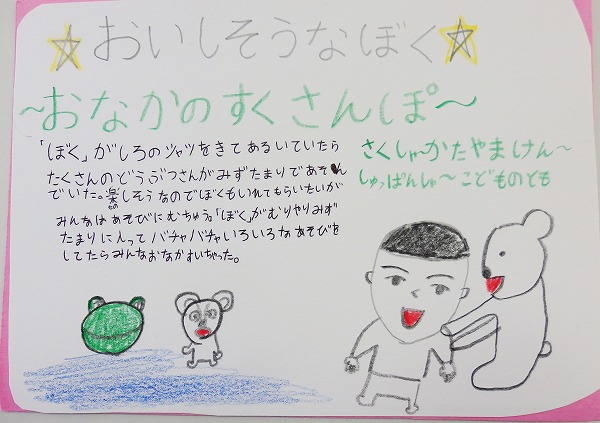 おいしそうなぼく
～おなかのすくさんぽ～
「ぼく」がしろのシャツをきてあるいていたら
たくさんのどうぶつさんがみずたまりであそん
でいた。楽しそうなのでぼくもいれてもらいたいが
たの
みんなはあそびにむちゅう。「ぼく」がむりやりみず
たまりに入ってバチャバチャいろいろなあそびを
してたらみんなおなかすいちゃった。
さくしゃ～かたやまけん～
しゅっぱんしゃ～こどものとも